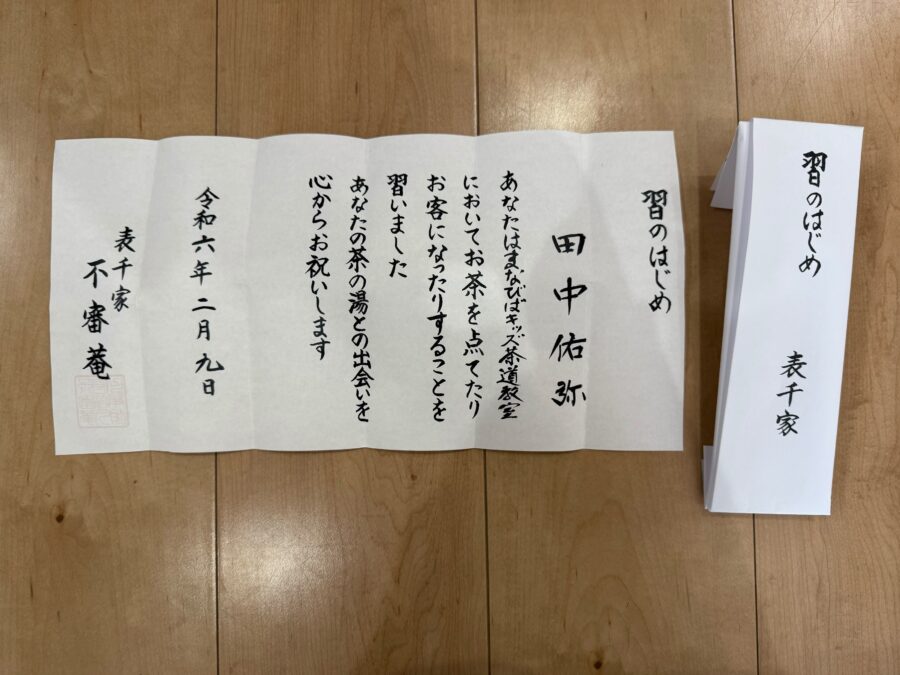 習のはじめ
田中佑弥
あなたはまなびばキッズ茶道教室
においてお茶を点てたり
お客になったりすることを
習いました
あなたの茶の湯との出会いを
心からお祝いします
令和六年二月九日
表千家
不審菴
習のはじめ
表千家